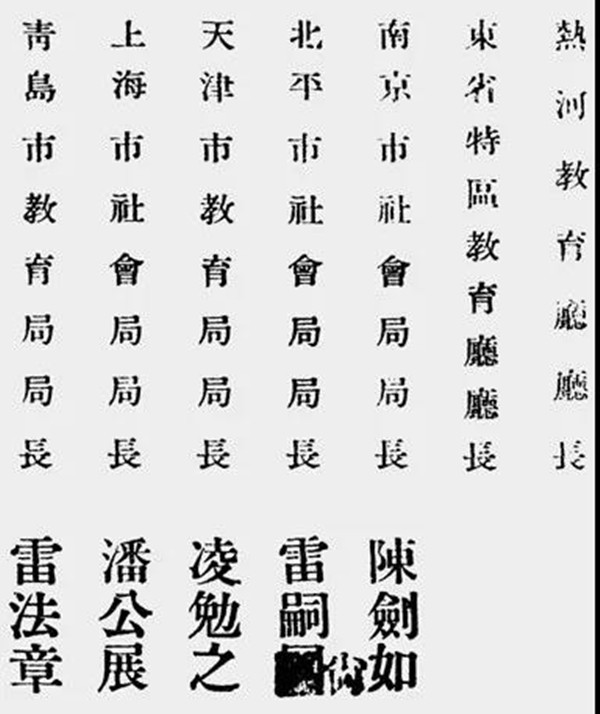 熱河教育廳廳長
東省特區教育廳廳長
南京市社會局局長 陳劍如
北平市社會局局長 雷嗣尙
天津市教育局局長 凌勉之
上海市社會局局長 潘公展
青島市教育局局長 雷法章